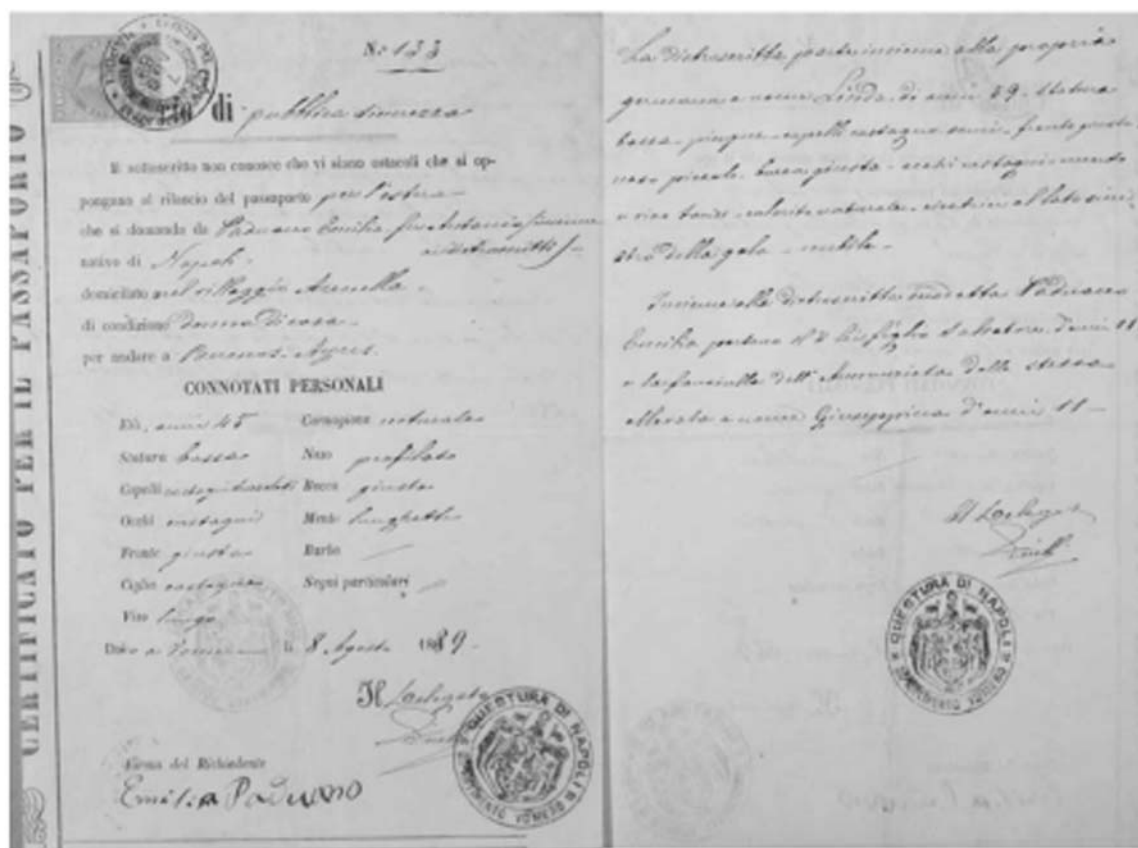 CERTIFICATO PER IL PASSAPORTO
N.° 133
di pubblica sicurezza
Il sottoscritto non conosce che vi siano ostacoli che si op-
pongano al rilascio del passaporto per l'estero
che si domanda da Paduano Emilia fu Antonio
nativo di Napoli
domiciliato nel villaggio Arenella
di condizione donna di casa
per andare a Buenos-Ayres
CONNOTATI PERSONALI
Età, anni 45 Corporatura naturale
Statura bassa Naso profilato
Capelli Bocca giusta
Occhi castagni Mento lunghetto
Fronte giusta Barba
Ciglia castagne Segni particolari
Viso lungo
Dato a li 8 Agosto 1889
Il Delegato
QUESTURA DI NAPOLI
VOMERO
Firma del Richiedente
Emilia Paduano
La dietroscritta parte insieme alla propria
germana a nome Linda di anni 29 statura
bassa pingue capelli castagno scuri fronte giusta
naso piccolo bocca giusta occhi castagni mento
e viso tondi colorito naturale cicatrice al lato sini
stro della gola nubile
Insieme alla dietroscritta Paduano
Emilia partono il di lei figlio Salvatore d'anni 18
e la fanciulla dell'Annunziata dalla stessa
allevata a nome Giuseppina d'anni 11
Il Delegato
QUESTURA DI NAPOLI